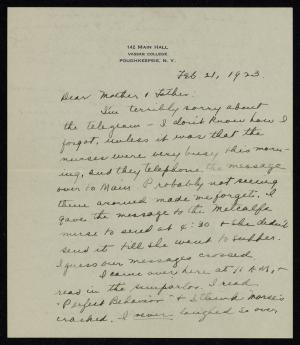 142 MAIN HALL
VASSAR COLLEGE
POUGHKEEPSIE, N. Y.
Feb 21, 1923.
Dear Mother & Father:
I'm terribly sorry about
the telegram – I don't know how I
forgot, unless it was that the
nurses were very busy this morn-
ing, and they telephone the message
over to Main. Probably not seeing
them around made me forget. I
gave the message to the Metcalf
nurse to send at 5:30 & she didn't
send it till she went to supper.
I guess our messages crossed.
I came over here at 11 A.M., &
read in the sunparlor. I read
"Perfect Behavior" & I think
cracked. I never laughed so over